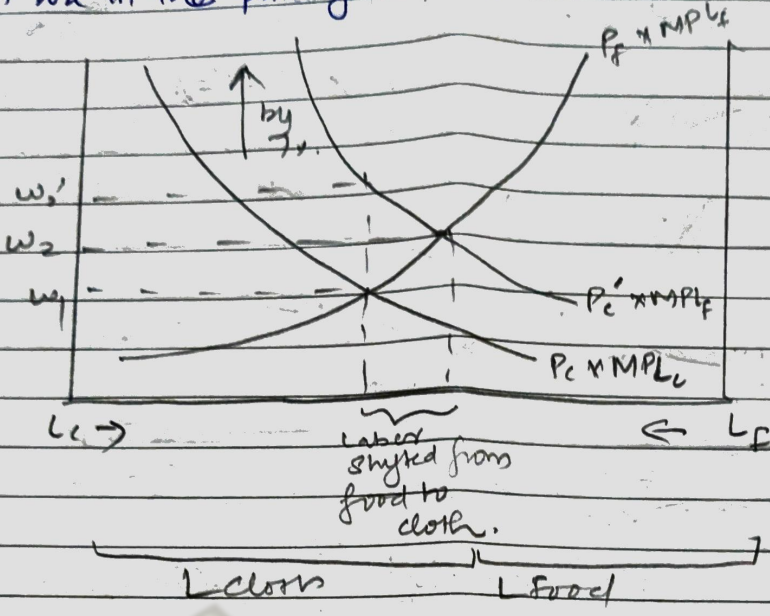 in the
P_f × MPL_f
by
7%.
w_2'
w_2
w_1
P_c' × MPL_f
P_c × MPL_c
L_c →
← L_F
Labor
shifted from
food to
cloth.
L cloth
L Food